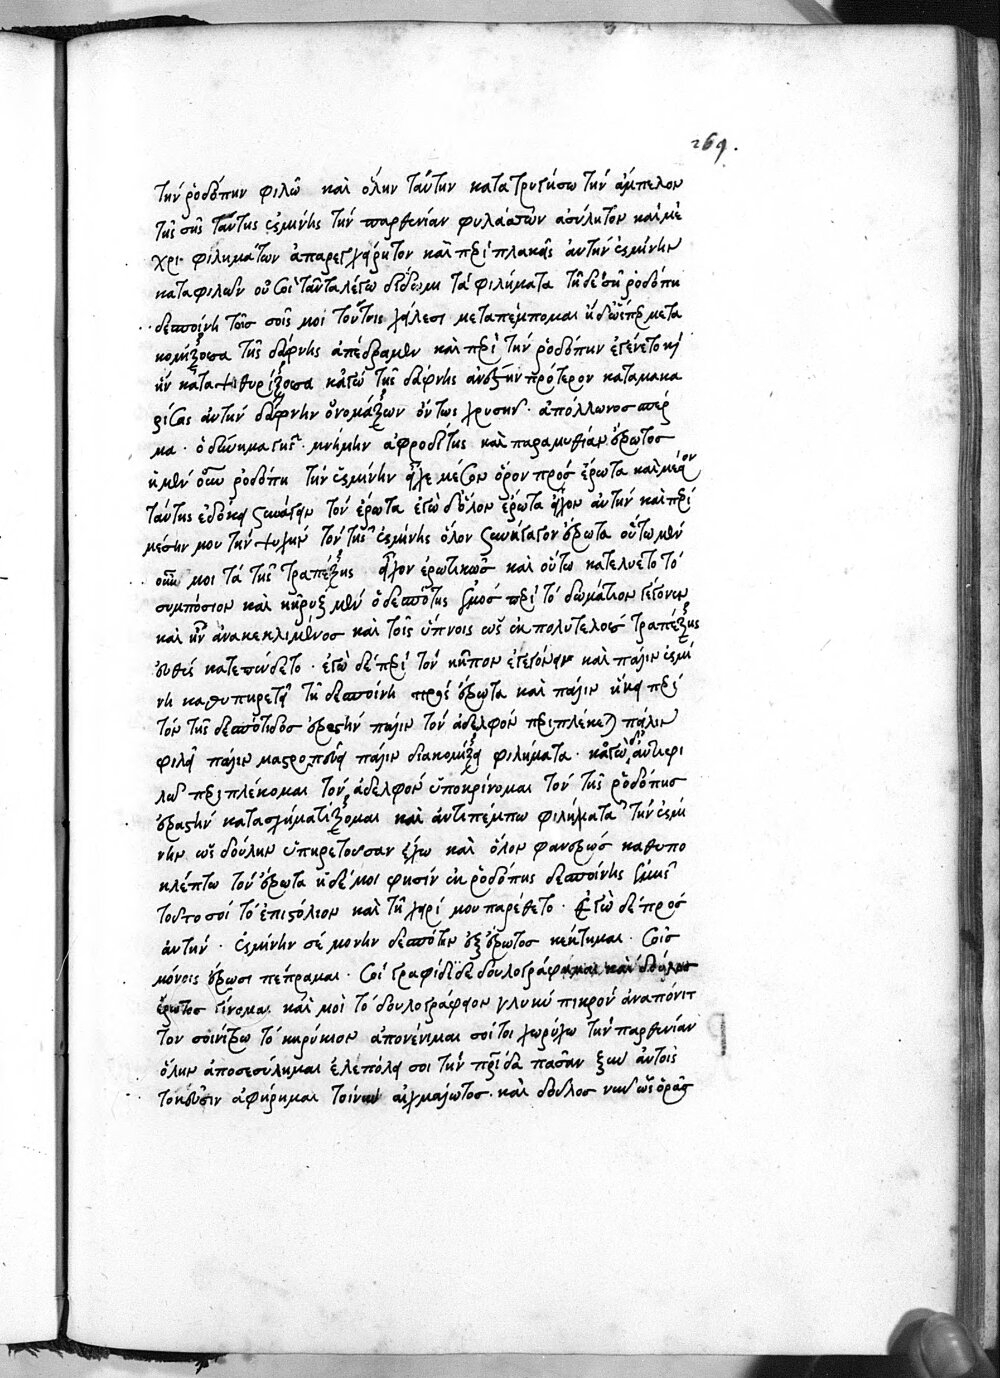 269.
τὴν ῥοδόπην φιλῶ καὶ ὅλην ταύτην κατατρυγήσω τὴν ἄμπελον
τῆς σῆς ταύτης ὑσμίνης τὴν παρθενίαν φυλάττων ἀσύλητον καὶ μέ
χρι φιλημάτων ἀπαρεγχείρητον καὶ περιπλακεὶς αὐτὴν ὑσμίνην
καταφιλῶν οὐ σοὶ ταῦτα λέγω δίδωμι τὰ φιλήματα τῇ δὲ σῇ ῥοδόπῃ
δεσποίνῃ τοῖς σοῖς μοι τούτοις χείλεσι μεταπέμπομαι ἡ δ' ὥσπερ μετα
κομίζουσα τῆς δάφνης ἀπέδραμεν καὶ περὶ τὴν ῥοδόπην ἐγένετο καὶ
ἦν καταψιθυρίζουσα κἀγὼ τῆς δάφνης ἀνέστην πρότερον καταμακα
ρίσας αὐτὴν δάφνην ὀνομάζων ὄντως χρυσῆν. ἀπόλλωνος περ
μα. ὁ δώνημα γῆς. μνήμην ἀφροδίτης καὶ παραμυθίαν ἔρωτος
ἡ μὲν οὖν ῥοδόπη τὴν ὑσμίνην εἶχε μέσον ὅρον πρὸς ἔρωτα καὶ μέσον
ταύτης ἐδόκει συνάγειν τὸν ἔρωτα ἐγὼ δ' ὅλον ἔρωτα εἶχον αὐτὴν καὶ περὶ
μέσην μου τὴν ψυχὴν τὸν τῆς ὑσμίνης ὅλον συνῆγον ἔρωτα οὕτω μὲν
οὖν μοι τὰ τῆς τραπέζης εἶχον ἐρωτικῶς καὶ οὕτω κατελύετο τὸ
συμπόσιον καὶ κήρυξ μὲν ὁ δεσπότης ἐμὸς περὶ τὸ δωμάτιον γέγονεν
καὶ ἦν ἀνακεκλιμένος καὶ τοῖς ὕπνοις ὡς ἐκ πολυτελοῦς τραπέζης
εὐθὺς κατεπύδετο. ἐγὼ δὲ περὶ τὸν κῆπον ἐγεγόνειν καὶ πάλιν ὑσμί
νη καθυπηρετεῖ τῇ δεσποίνῃ πρὸς ἔρωτα καὶ πάλιν ἥκει περὶ
τὸν τῆς δεσπότιδος ἐραστὴν πάλιν τὸν ἀδελφὸν περιπλέκεται πάλιν
φιλεῖ πάλιν μαστροπεύει πάλιν διακομίζει φιλήματα. κἀγὼ δὲ ἀντιφι
λῶ περιπλέκομαι τὸν ἀδελφὸν ὑποκρίνομαι τὸν τῆς ῥοδόπης
ἐραστὴν κατασχηματίζομαι καὶ ἀντιπέμπω φιλήματα τὴν ὑσμί
νην ὡς δούλην ὑπηρετοῦσαν ἔχω καὶ ὅλον φανερῶς καθυπο
κλέπτω τὸν ἔρωτα ἡ δέ μοι φησὶν ἐκ ῥοδόπης δεσποίνης ἐμῆς
τοῦτο σοὶ τὸ ἐπιστόλιον καὶ τῇ χειρί μου παρέθετο. Ἐγὼ δὲ πρὸς
αὐτήν. ὑσμίνην σὲ μόνην δεσπότιν ἐξ ἔρωτος κέκτημαι. σοῖς
μόνοις ἔρωσι πέπραμαι. σοὶ γραφίδι δὲ δουλογράφομαι καὶ δοῦλος
ἔρωτος γίνομαι καί μοι τὸ δουλογράφιον γλυκύ πικρὸν ἀναπόνιπ
τον σοινίζω τὸ κηρύκιον ἀπονένιμμαι σοί τοι χωρίχω τὴν παρθενίαν
ὅλην ἀποσεσύλημαι ἑλεπόλει σοι τὴν πατρίδα πᾶσαν ξὺν αὐτοῖς
τοκεῦσιν ἀφῄρημαι τοίνυν αἰχμάλωτος. καὶ δοῦλος νῦν ὡς ὁρᾷς